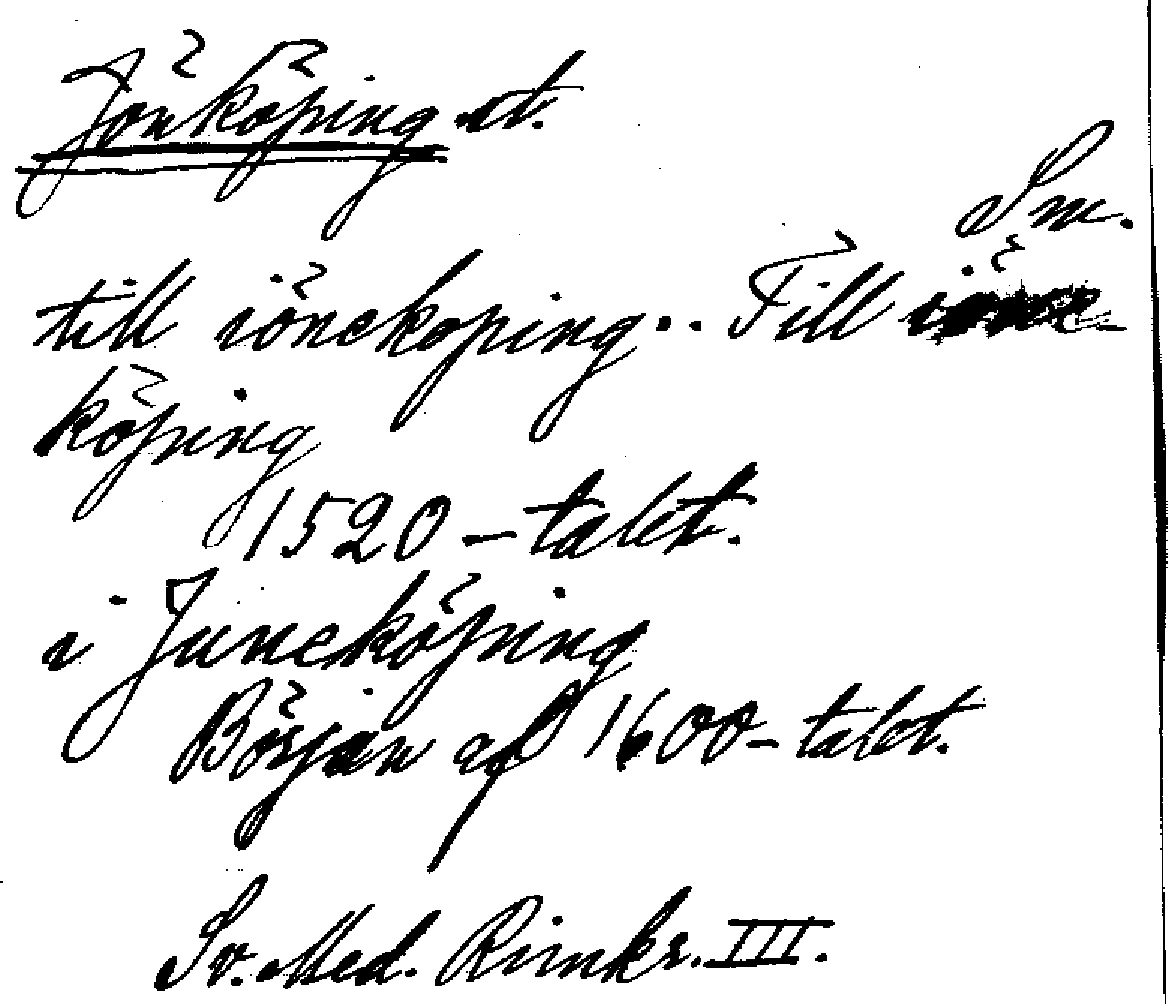 Jönköping st.
Sm.
till iönekoping.. Till iöne-
köping
1520-talet.
i Juneköping
Början af 1600-talet.
Sv. Med. Rimkr. III.